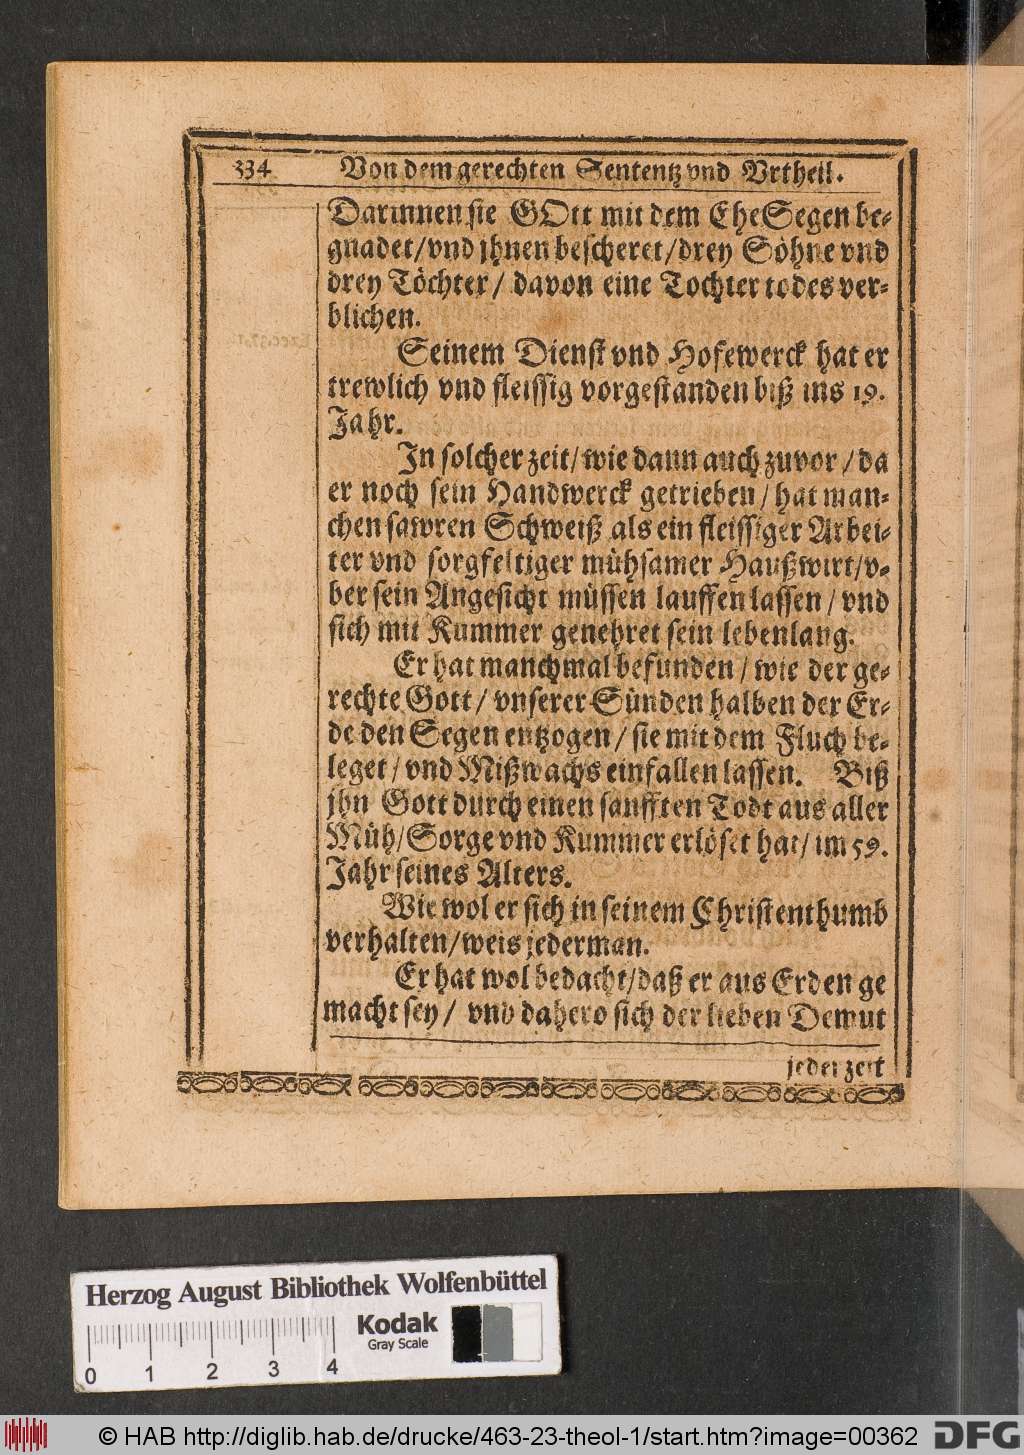 334 Von dem gerechten Sententz vnd Vrtheil.
Darinnen sie GOtt mit dem EheSegen be-
gnadet/vnd jhnen bescheret/drey Söhne vnd
drey Töchter/ davon eine Tochter todes ver-
blichen.
Seinem Dienst vnd Hofewerck hat er
trewlich vnd fleissig vorgestanden biß ins 19.
Jahr.
In solcher zeit/wie dann auch zuvor/da
er noch sein Handwerck getrieben/hat man-
chen sawren Schweiß als ein fleissiger Arbei-
ter vnd sorgfeltiger mühsamer Haußwirt/v-
ber sein Angesicht müssen lauffen lassen/vnd
sich mit Kummer genehret sein lebenlang.
Er hat manchmal befunden/wie der ge-
rechte Gott/vnserer Sünden halben der Er-
de den Segen entzogen/sie mit dem Fluch be-
leget/vnd Mißwachs einfallen lassen. Biß
jhn Gott durch einen sanfften Todt aus aller
Müh/Sorge vnd Kummer erlöset hat/im 59.
Jahr seines Alters.
Wie wol er sich in seinem Christenthumb
verhalten/weis jederman.
Er hat wol bedacht/daß er aus Erden ge
macht sey/ vnd dahero sich der lieben Demut
jederzeit
Herzog August Bibliothek Wolfenbüttel
Kodak
Gray Scale
0 1 2 3 4
© HAB http://diglib.hab.de/drucke/463-23-theol-1/start.htm?image=00362 DFG